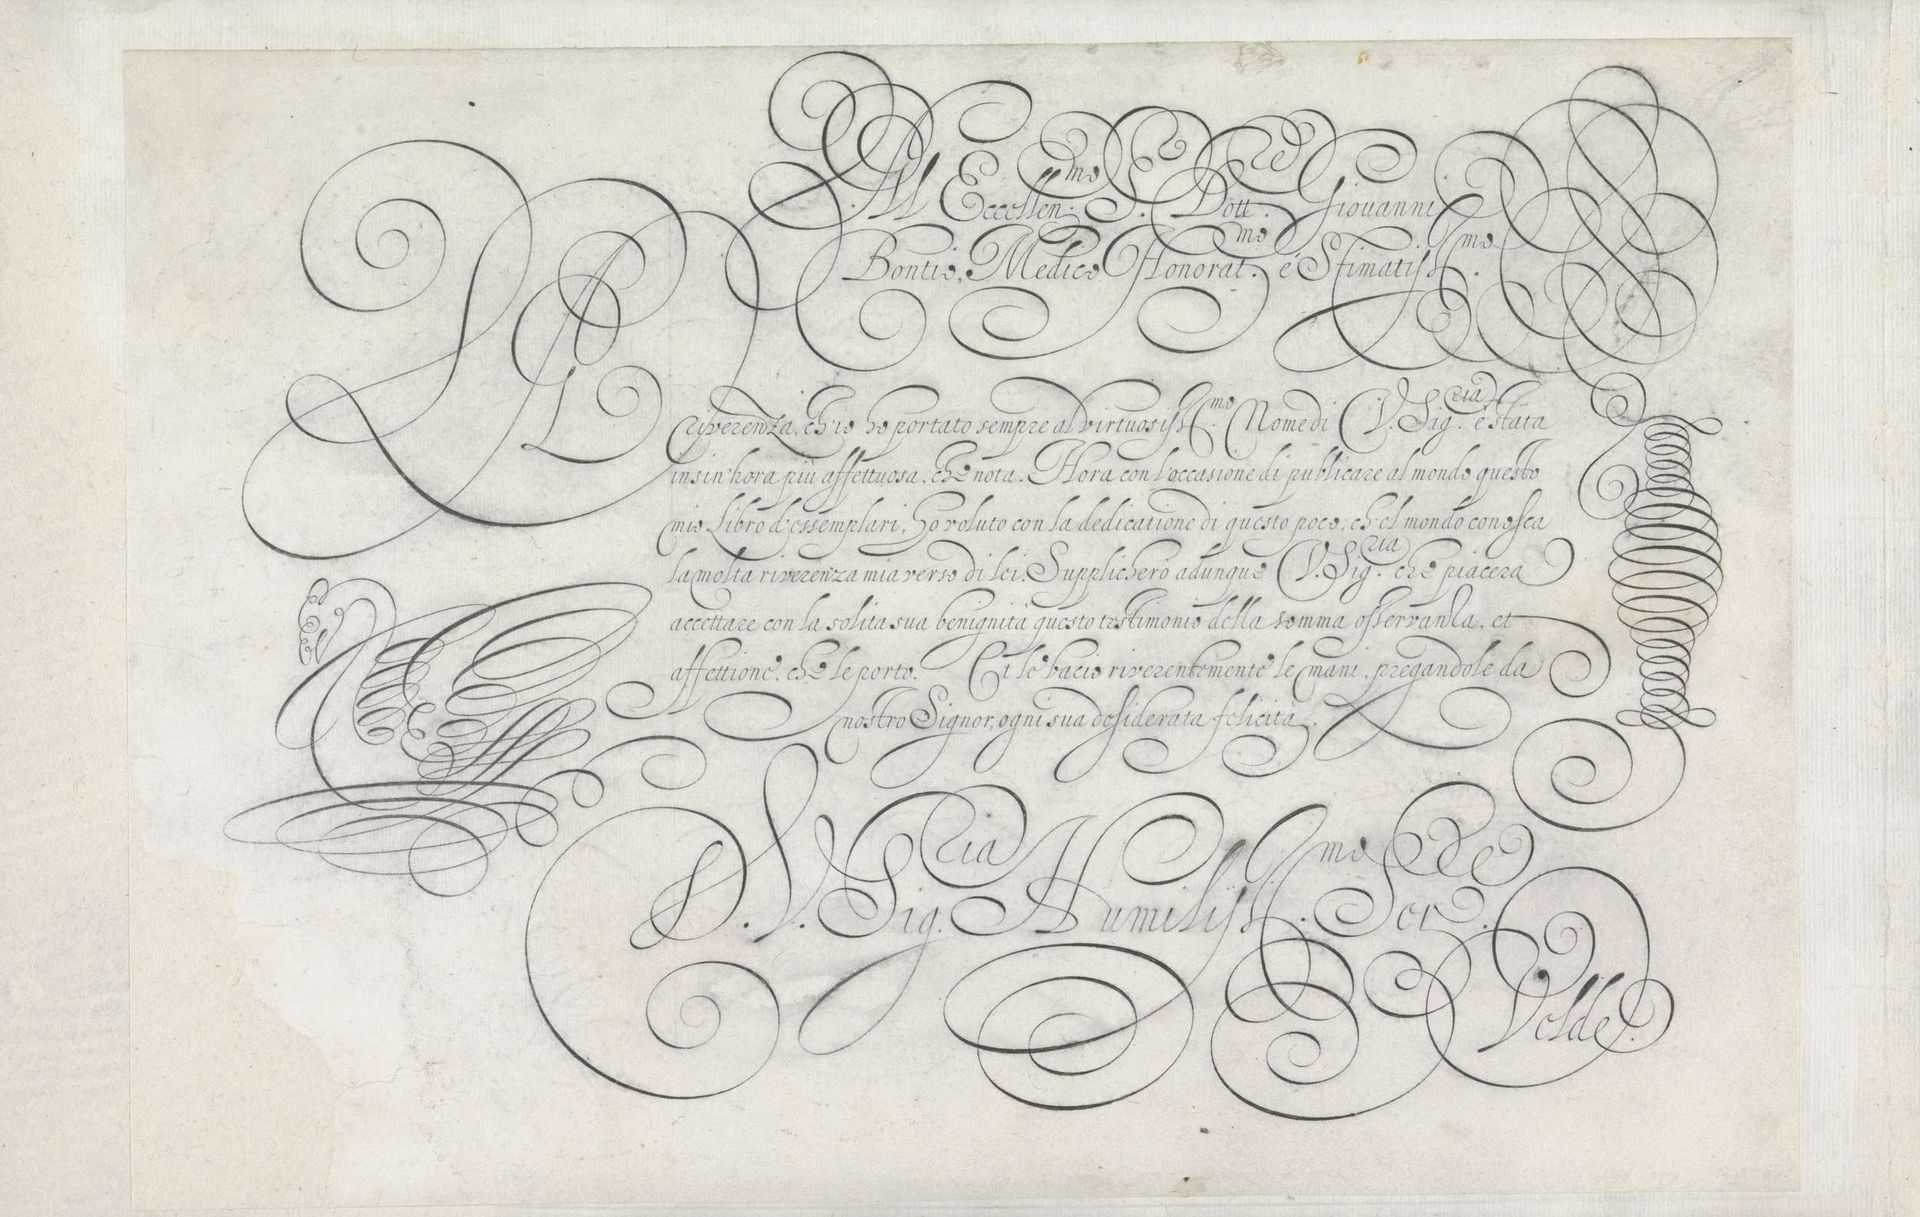 Al Eccellen.mo S.or Dott.re Giovanni
Bontio, Medico Honorat.mo é Stimatiss.mo.
LA riverenza, ch'io ho portato sempre al virtuosiss.mo Nome di V. Sig.ria é stata
insin'hora più affettuosa, che nota. Hora con l'occasione di publicare al mondo questo
mio Libro d'essemplari, ho voluto con la dedicatione di questo poco, ch'el mondo conosca
la molta riverenza mia verso di lei. Supplicherò adunque V. Sig.ria che piacera
accettare con la solita sua benignità questo testimonio della somma osservanza, et
affettione, che le porto. Et le bacio riverentemente le mani, pregandole da
nostro Signor, ogni sua desiderata felicità.
D. V. Sig.ria Humiliss.mo Ser.re
Velde.